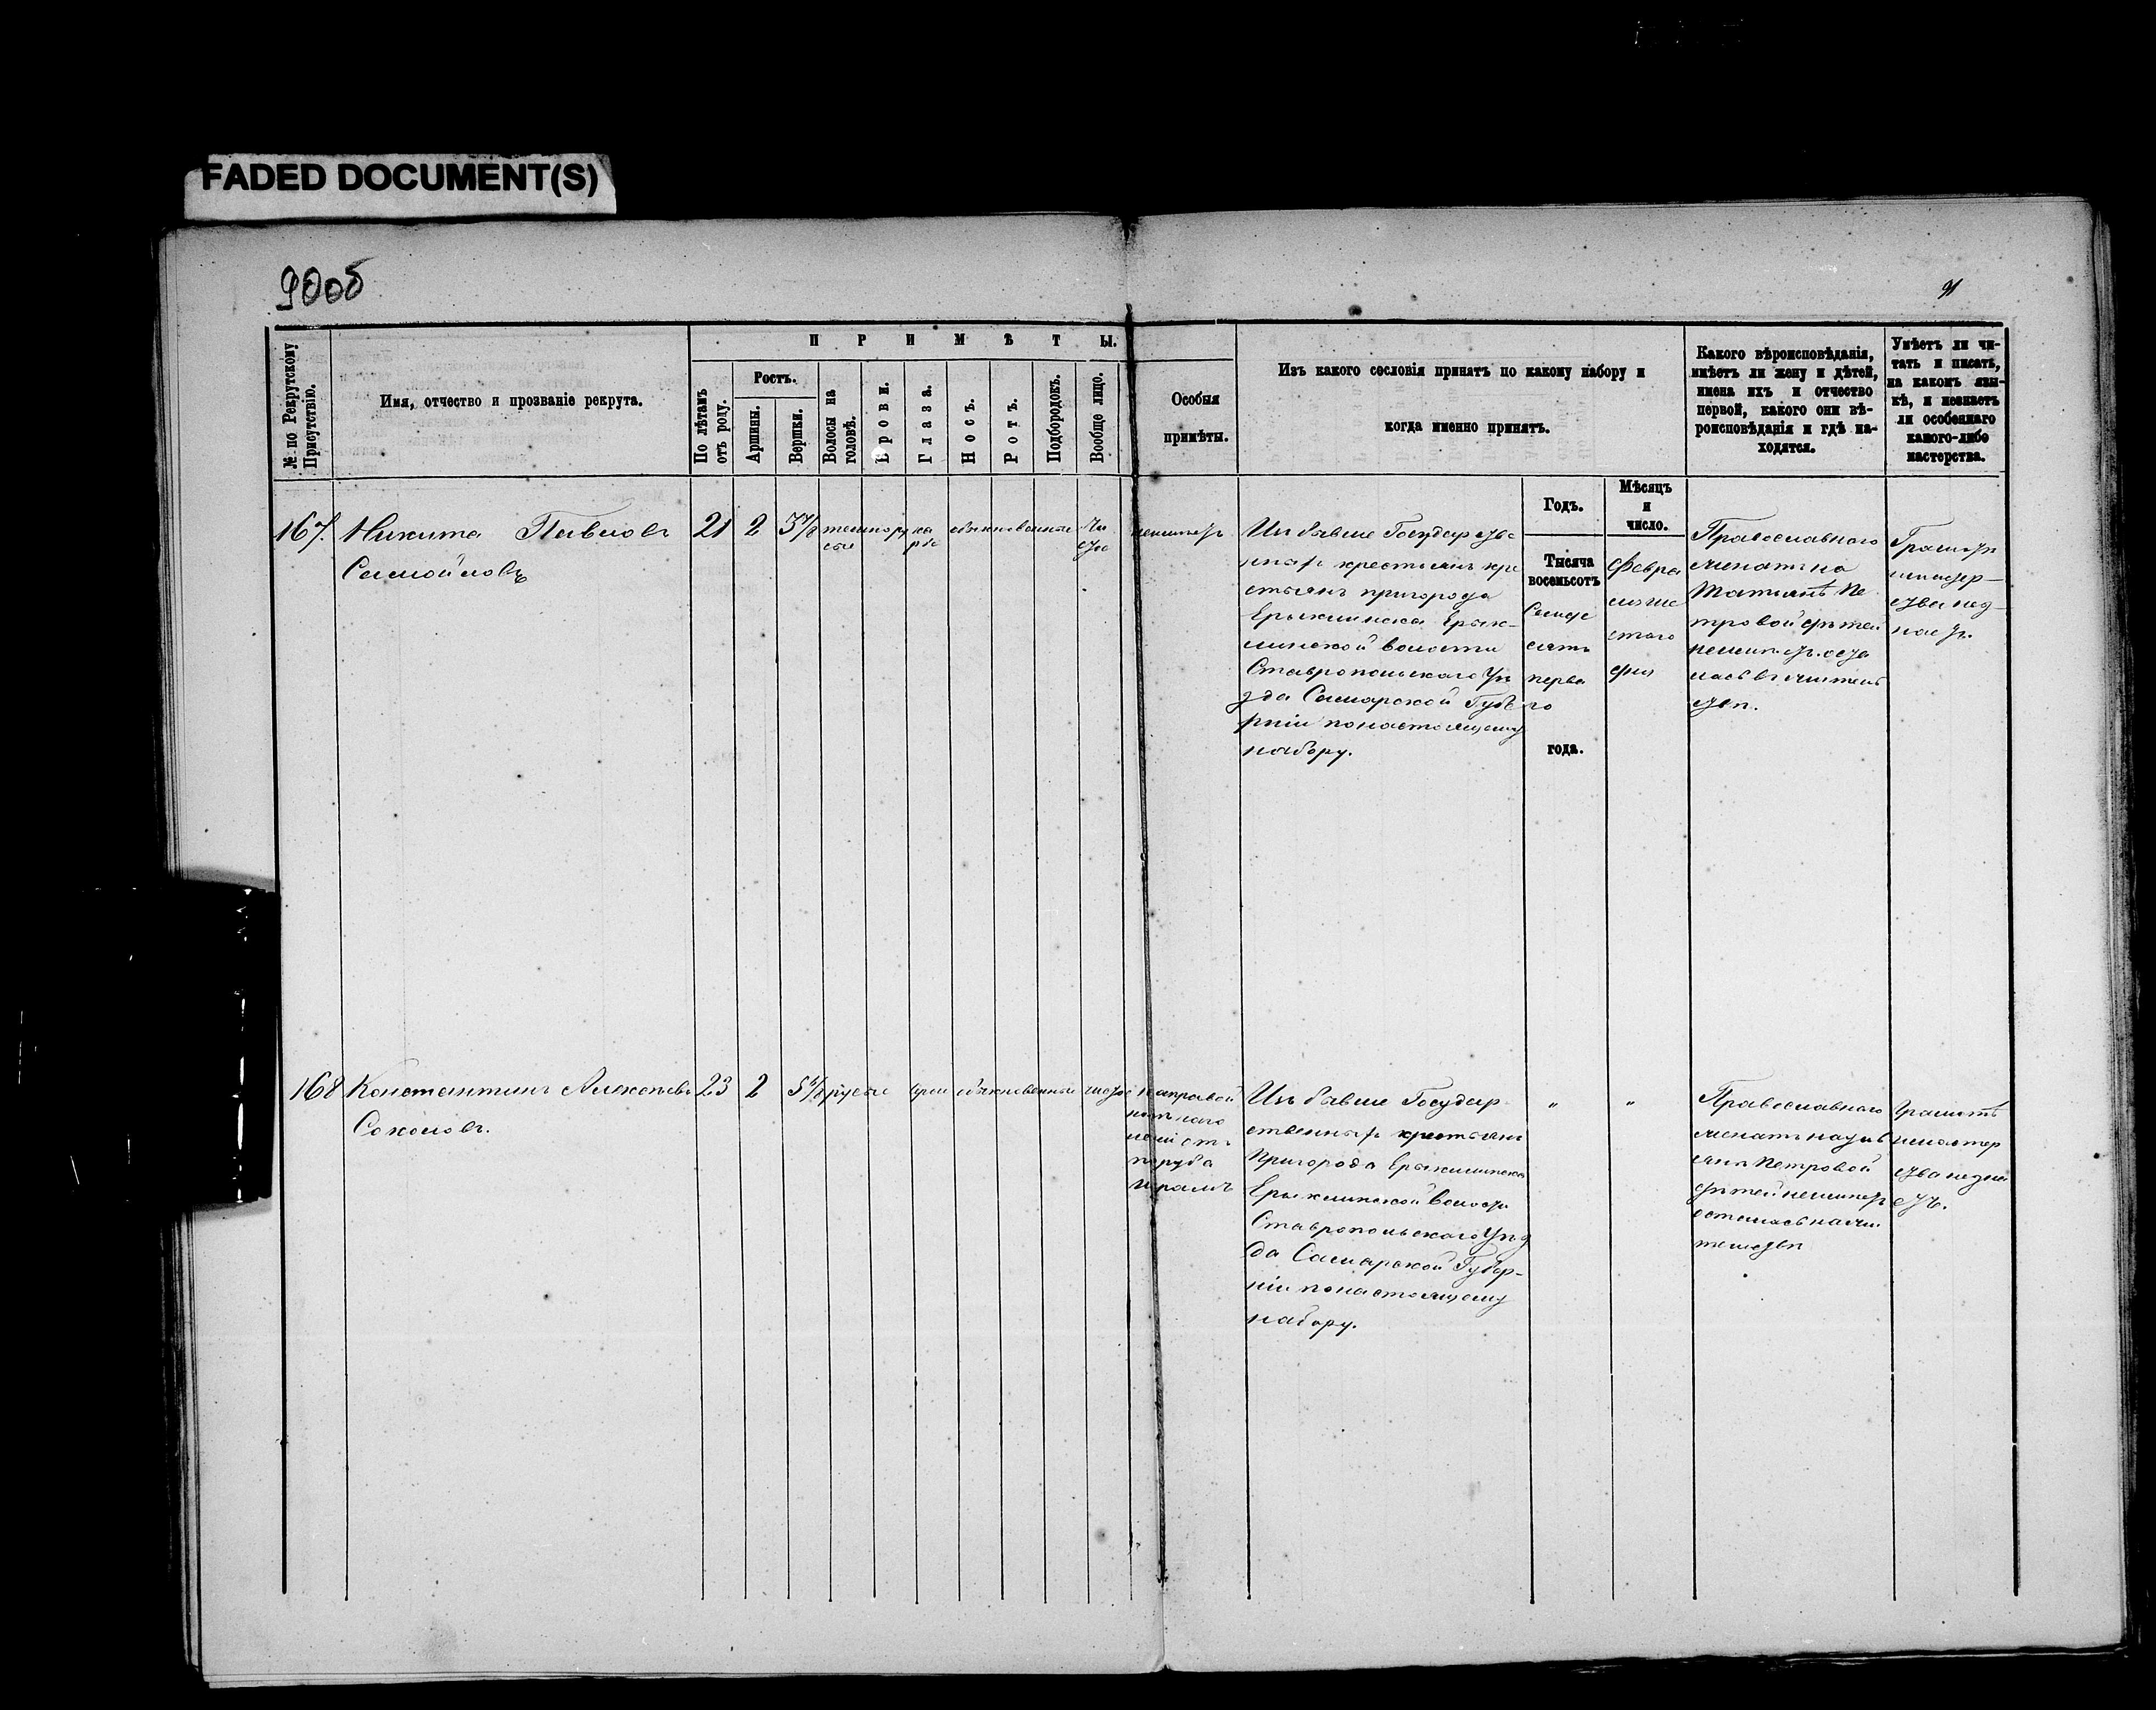 FADED DOCUMENT(S)
90об
91
№ по Рекрутскому Присутствію.
Имя, отчество и прозваніе рекрута.
ПРИМѢТЫ.
По лѣтамъ отъ роду.
Ростъ.
Аршины.
Вершки.
Волосы на головѣ.
Брови.
Глаза.
Носъ.
Ротъ.
Подбородокъ.
Вообще лицо.
Особыя
примѣты.
Изъ какого сословія принятъ по какому набору и
когда именно принятъ.
Какого вѣроисповѣданія,
имѣетъ ли жену и дѣтей,
имена ихъ и отчество
первой, какого они вѣ-
роисповѣданія и гдѣ на-
ходятся.
Умѣетъ ли чи-
тать и писать,
на какомъ язы-
кѣ, и незнаетъ
ли особеннаго
какого-либо
мастерства.
Годъ.
Мѣсяцъ
и
число.
167.
Никита Павловъ
Самойловъ
21
2
3 7/8
темнору
сые
ка
ріе
обыкновенные
чи
стое
неимѣетъ
Изъ бывше Государстве
ныхъ крестьянъ кре
стьянъ пригорода
Ерыклинска Ерык-
линской волости
Ставропольскаго Уѣ
зда Самарской Губе
рніи по настоящему
набору.
Тысяча
восемьсотъ
Семьде
сятъ
перва
го
года.
Февра
ля ше
стаго
дня
Православнаго
женатъ на
Татьянѣ Пе
тровой дѣтей
неимѣетъ оста
лась въ житель
ствѣ.
Грамотѣ
и мастер-
ства нез-
наетъ.
168
Константинъ Алексѣевъ
Соколовъ.
23
2
5 6/8
русые
сѣрые
обыкновенные
чистое
на правой
отъ
поруба
шрамъ
Изъ бывше Государ-
ственныхъ крестьянъ
Пригорода Ерыклинска
Ерыклинской волости
Ставропольскаго Уѣз
да Самарской Губер-
ніи по настоящему
набору.
"
"
Православнаго
женатъ на
Петровой
дѣтей неимѣетъ
осталась на жи
тельствѣ
Грамотѣ
и мастер
ства незна
етъ.